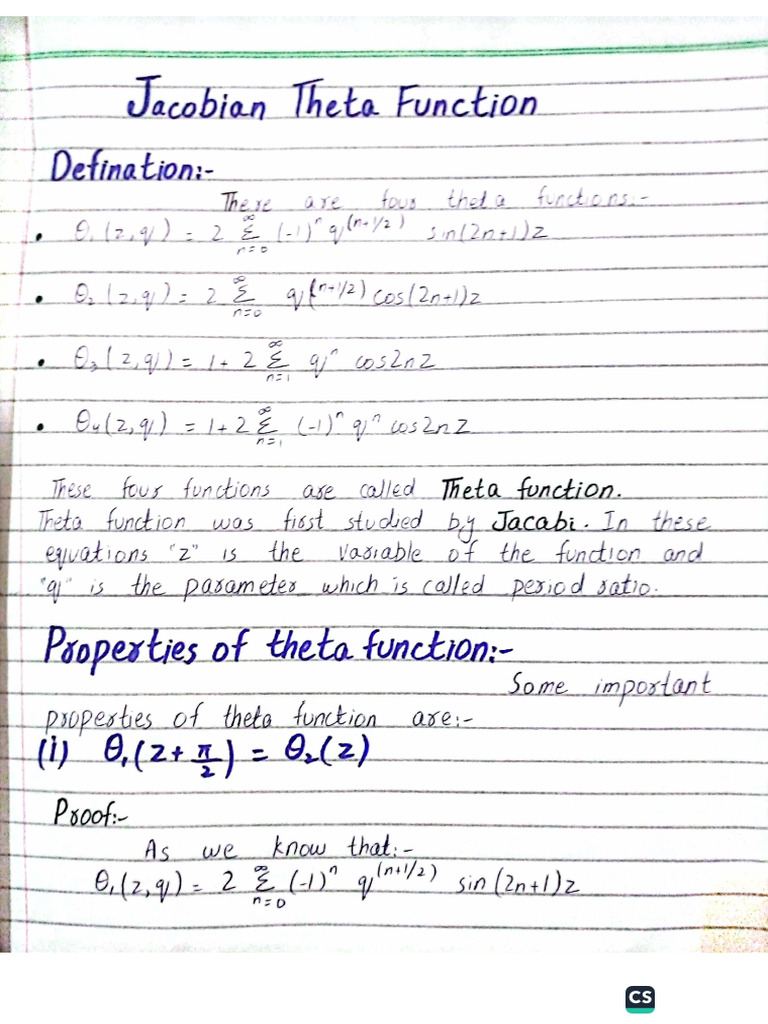 Jacobian Theta Function
Defination:-
There are four theta functions:-
• θ₁(z,q) = 2 Σ_{n=0}^{∞} (-1)ⁿ q^(n+1/2) sin(2n+1)z
• θ₂(z,q) = 2 Σ_{n=0}^{∞} q^(n+1/2) cos(2n+1)z
• θ₃(z,q) = 1+2 Σ_{n=1}^{∞} qⁿ cos2nz
• θ₄(z,q) = 1+2 Σ_{n=1}^{∞} (-1)ⁿ qⁿ cos2nz
These four functions are called Theta function.
Theta function was first studied by Jacabi. In these
equations "z" is the variable of the function and
"q" is the parameter which is called period ratio.
Properties of theta function:-
Some important
properties of theta function are:-
(i) θ₁(z+π/2) = θ₂(z)
Proof:-
As we know that:-
θ₁(z,q) = 2 Σ_{n=0}^{∞} (-1)ⁿ q^(n+1/2) sin(2n+1)z
CS